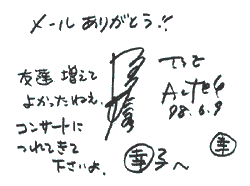 メールありがとう!!
友達 増えて
よかったねえ。
コンサートに
つれてきて
下さいよ。
98.6.9
幸
幸子へ